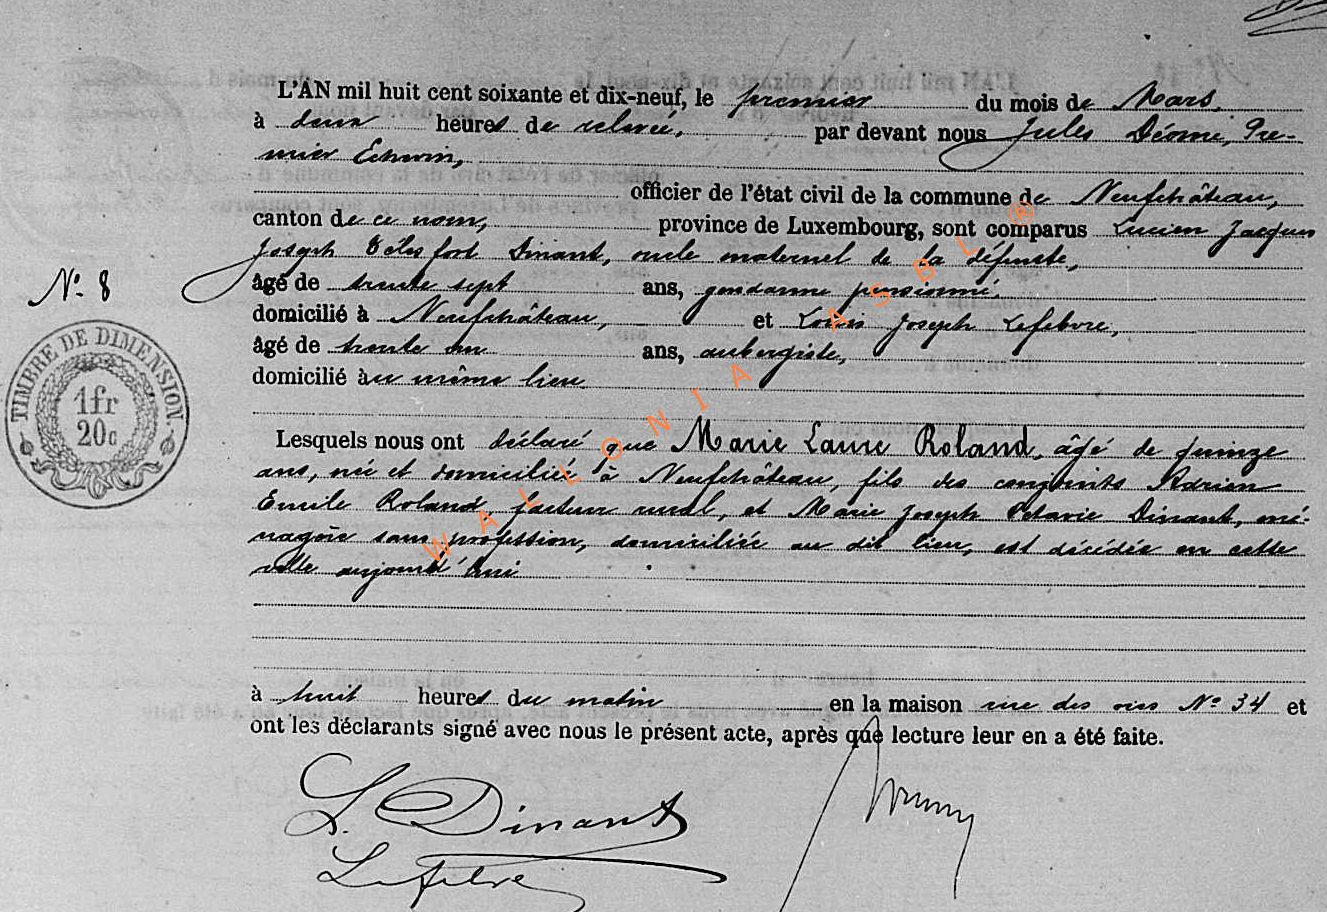 L'AN mil huit cent soixante et dix-neuf, le premier du mois de Mars,
à deux heures de relevée, par devant nous Jules Déome, Pre-
mier Echevin,
officier de l'état civil de la commune de Neufchâteau,
canton de ce nom, province de Luxembourg, sont comparus Lucien Jacques
Joseph Télesfort Dinant, oncle maternel de la défunte,
N° 8
âgé de trente sept ans, gendarme pensionné,
domicilié à Neufchâteau, et Louis Joseph Lefebvre,
âgé de trente un ans, aubergiste,
domicilié au même lieu.
TIMBRE DE DIMENSION
1fr
20c
Lesquels nous ont déclaré que Marie Laure Roland, âgé de quinze
ans, née et domiciliée à Neufchâteau, fils des conjoints Adrien
Emile Roland, facteur rural, et Marie Joseph Octavie Dinant, mé-
nagère sans profession, domiciliée au dit lieu, est décédée en cette
ville aujourd'hui
à huit heures du matin en la maison rue des N° 34 et
ont les déclarants signé avec nous le présent acte, après que lecture leur en a été faite.
L. Dinant
Lefebvre
WALLONIA ASBL ®